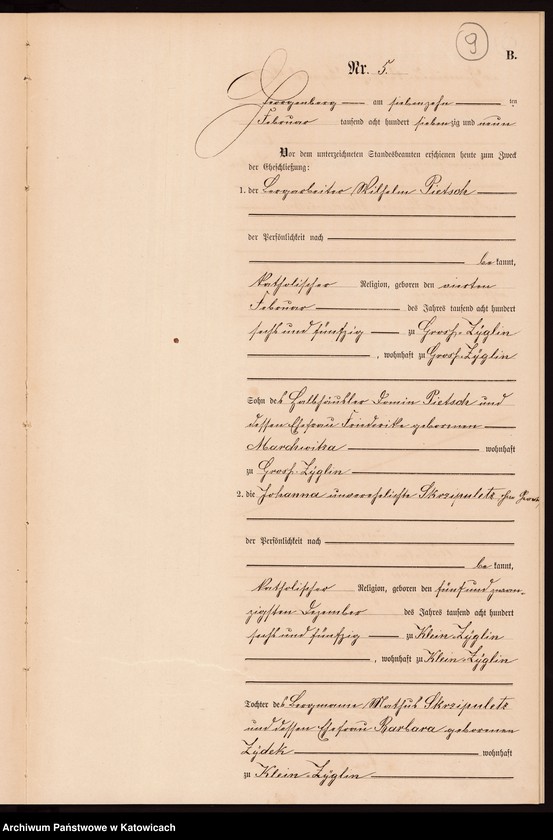 9
B.
Nr. 5.
Georgenberg am siebenzehn ten
Februar tausend acht hundert siebenzig und neun
Vor dem unterzeichneten Standesbeamten erschienen heute zum Zweck
der Eheschließung:
1. der Bergarbeiter Wilhelm Pietsch
der Persönlichkeit nach
be kannt,
katholischer Religion, geboren den vierten
Februar des Jahres tausend acht hundert
sechs und fünfzig zu Gross-Zyglin
, wohnhaft zu Gross-Zyglin
Sohn des Halbhäusler Pietsch und
dessen Ehefrau Friederike geborenen
Marchwitza wohnhaft
zu Gross-Zyglin
2. die Johanna unverehelichte Skrzipuletz
der Persönlichkeit nach
be kannt,
katholischer Religion, geboren den fünf und zwan-
zigsten Dezember des Jahres tausend acht hundert
sechs und fünfzig zu Klein-Zyglin
, wohnhaft zu Klein-Zyglin
Tochter des Bergmanns Mathus Skrzipuletz
und dessen Ehefrau Barbara geborenen
Zydek wohnhaft
zu Klein-Zyglin
Archiwum Państwowe w Katowicach